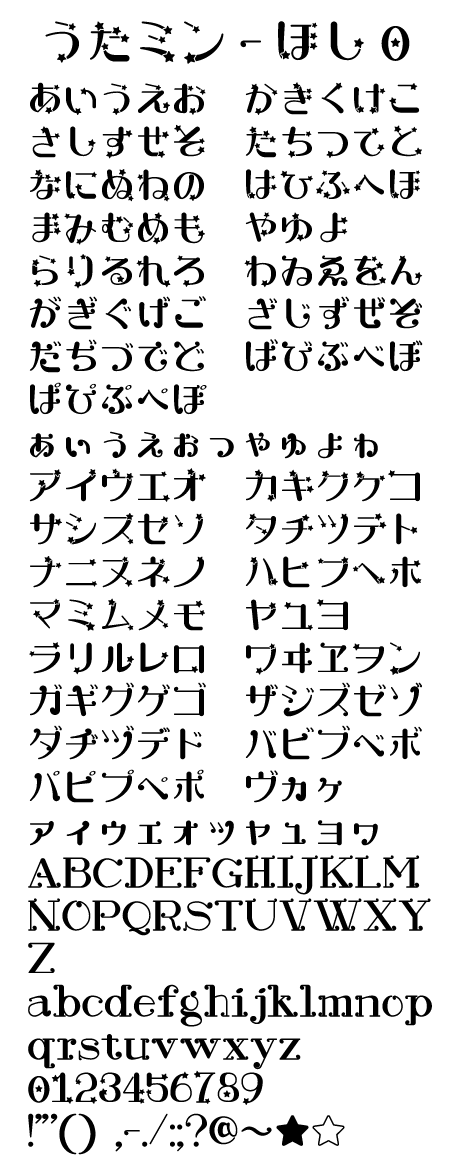 うたミン-ほし0
あいうえお　かきくけこ
さしずぜそ　たちつてと
なにぬねの　はひふへほ
まみむめも　やゆよ
らりるれろ　わゐゑをん
がぎぐげご　ざじずぜぞ
だぢづでど　ばびぶべぼ
ぱぴぷぺぽ
ぁぃぅぇぉっゃゅょゎ
アイウエオ　カキクケコ
サシスセソ　タチツテト
ナニヌネノ　ハヒフヘホ
マミムメモ　ヤユヨ
ラリルレロ　ワヰヱヲン
ガギグゲゴ　ザジズゼゾ
ダヂヅデド　バビブベボ
パピプペポ　ヴヵヶ
ァィゥェォッャュョヮ
ABCDEFGHIJKLM
NOPQRSTUVWXY
Z
abcdefghijklmnop
qrstuvwxyz
0123456789
!"'() ,-./:;?@~★☆